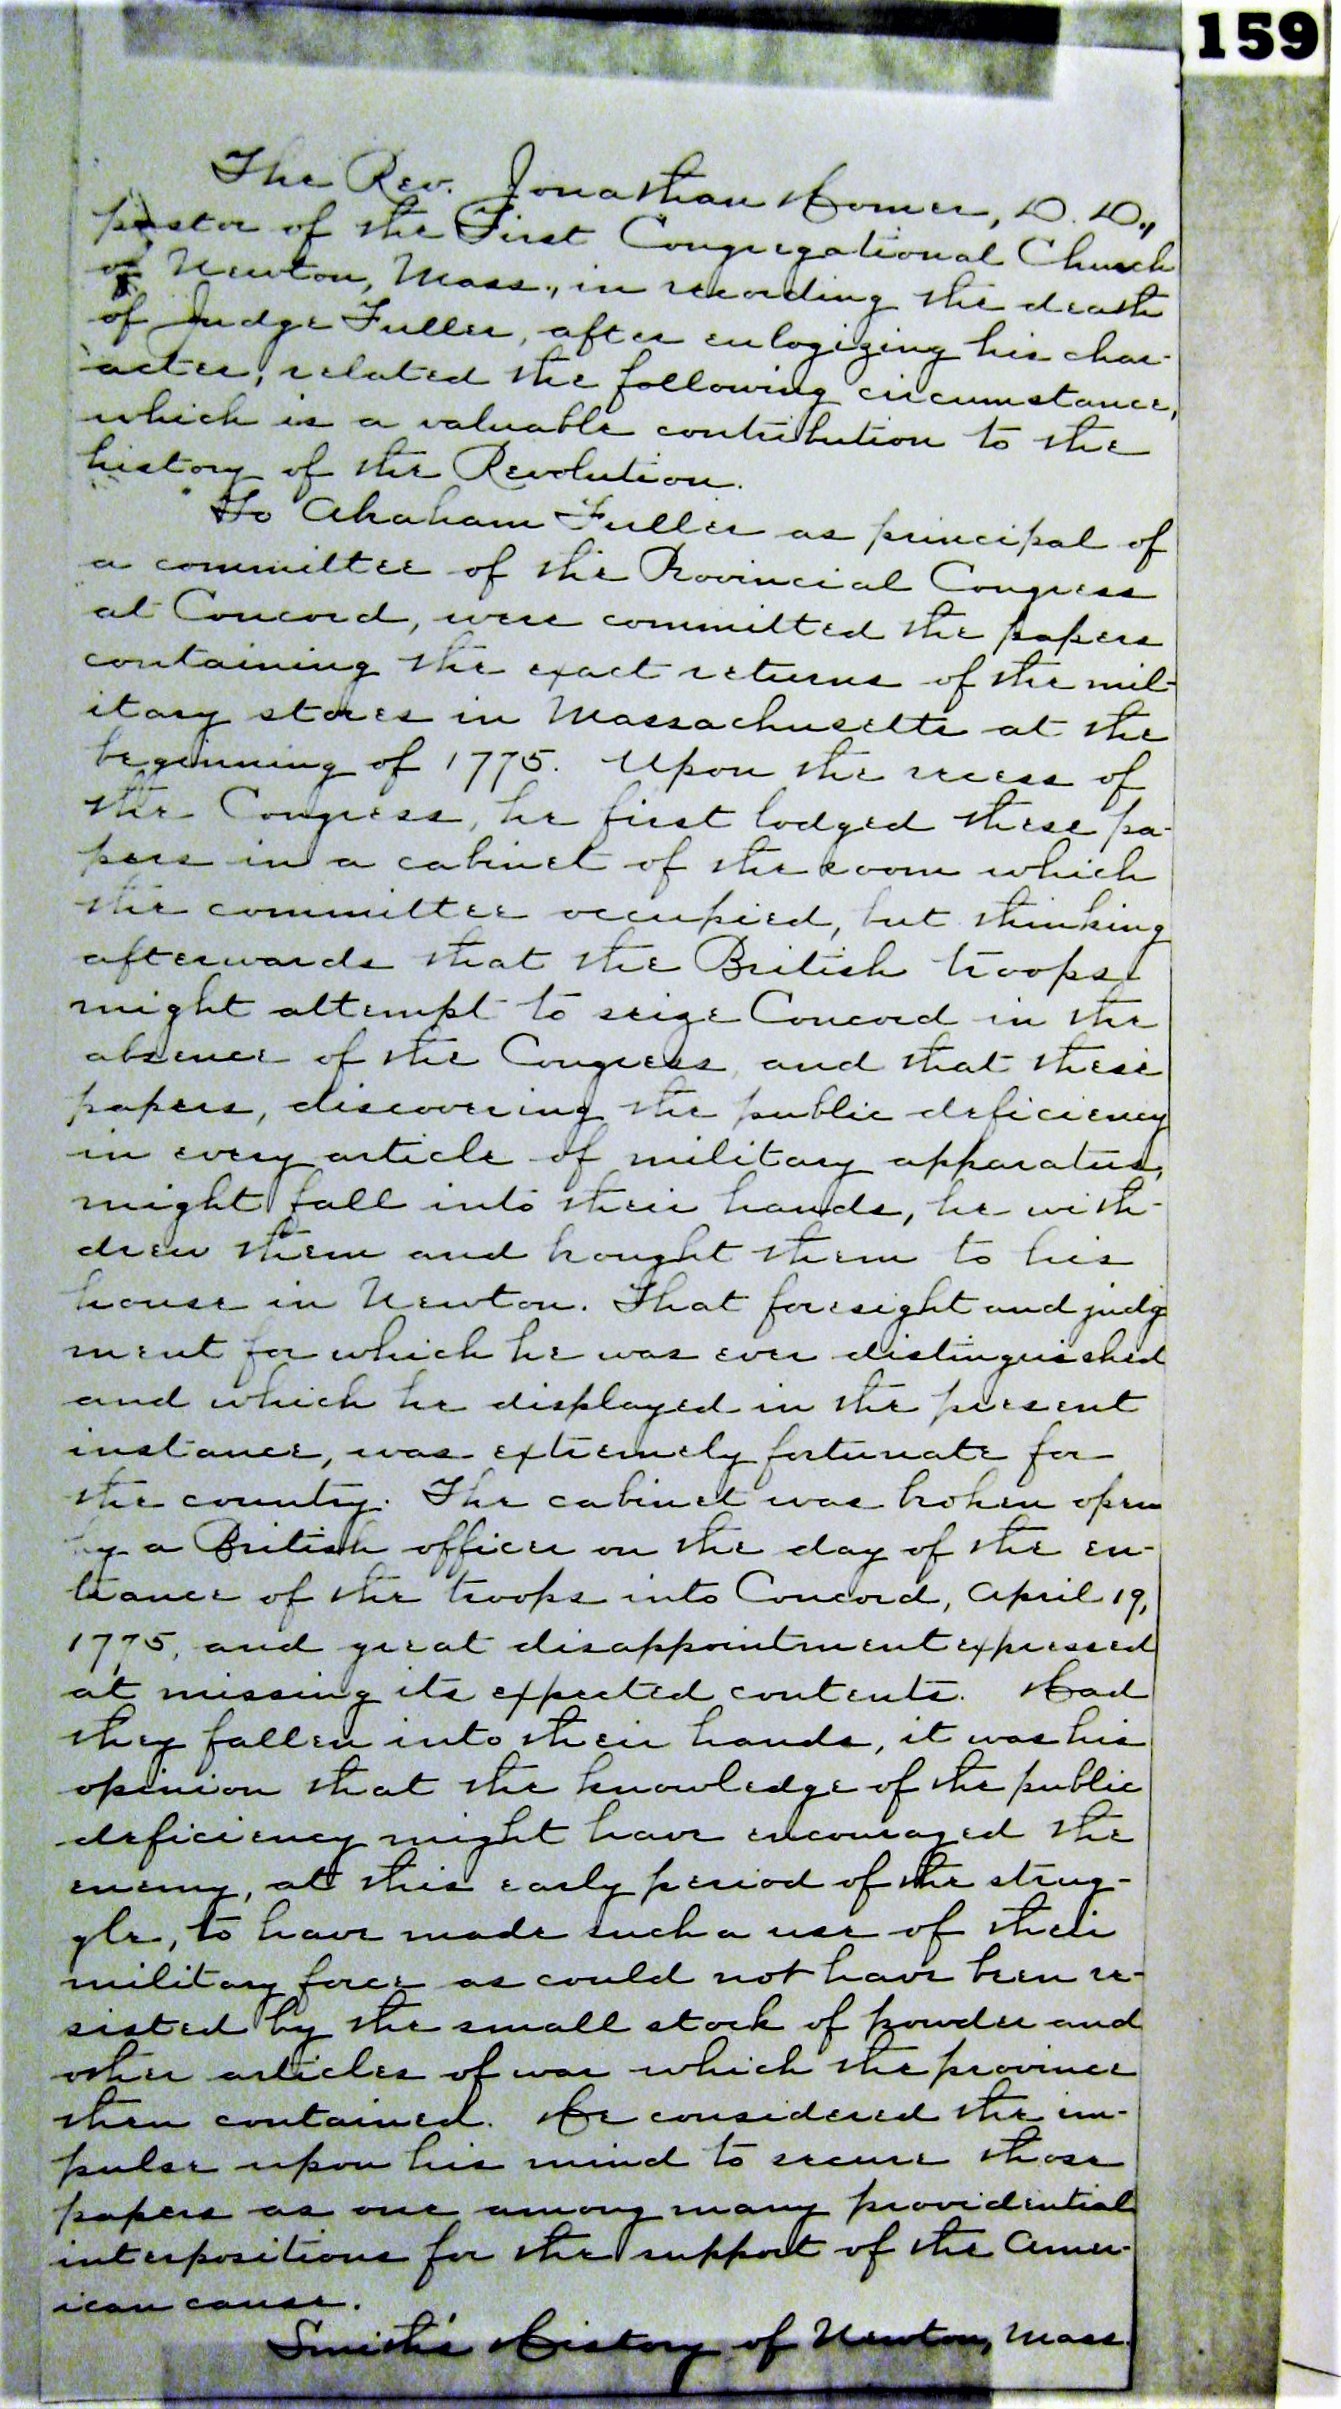 159
The Rev. Jonathan Homer, D. D.,
pastor of the First Congregational Church
of Newton, Mass., in recording the death
of Judge Fuller, after eulogizing his char-
acter, related the following circumstance,
which is a valuable contribution to the
history of the Revolution.
"To Abraham Fuller as principal of
a committee of the Provincial Congress
at Concord, were committed the papers
containing the exact returns of the mil-
itary stores in Massachusetts at the
beginning of 1775. Upon the recess of
the Congress, he first lodged these pa-
pers in a cabinet of the room which
the committee occupied, but thinking
afterwards that the British troops
might attempt to seize Concord in the
absence of the Congress, and that these
papers, discovering the public deficiency
in every article of military apparatus,
might fall into their hands, he with-
drew them and brought them to his
house in Newton. That foresight and judg
ment for which he was ever distinguished
and which he displayed in the present
instance, was extremely fortunate for
the country. The cabinet was broken open
by a British officer on the day of the en-
trance of the troops into Concord, April 19,
1775, and great disappointment expressed
at missing its expected contents. Had
they fallen into their hands, it was his
opinion that the knowledge of the public
deficiency might have encouraged the
enemy, at this early period of the strug-
gle, to have made such a use of their
military force as could not have been re-
sisted by the small stock of powder and
other articles of war which the province
then contained. He considered the im-
pulse upon his mind to secure those
papers as one among many providential
interpositions for the support of the Amer-
ican cause.
Smith's History of Newton, Mass.